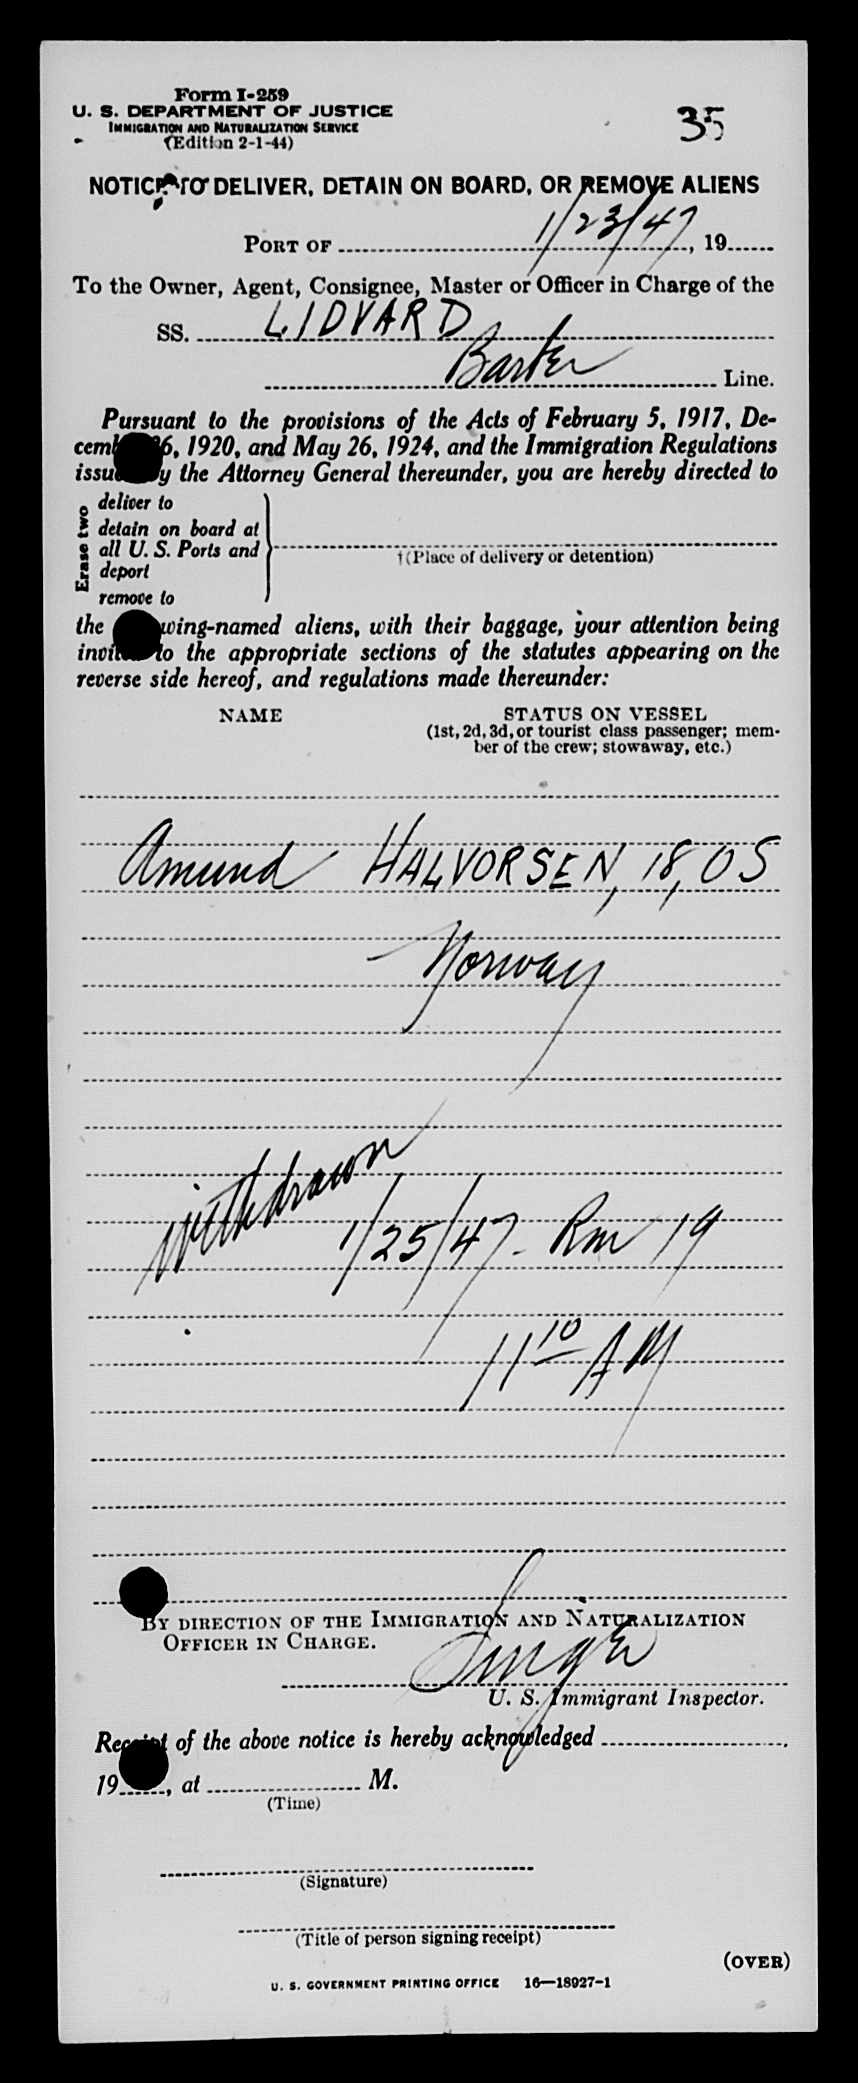 Form I-259
U. S. DEPARTMENT OF JUSTICE
IMMIGRATION AND NATURALIZATION SERVICE
(Edition 2-1-44)
35
NOTICE TO DELIVER, DETAIN ON BOARD, OR REMOVE ALIENS
PORT OF 1/23/47, 19
To the Owner, Agent, Consignee, Master or Officer in Charge of the
SS. LIDVARD
Barber Line.
Pursuant to the provisions of the Acts of February 5, 1917, De-
cember 26, 1920, and May 26, 1924, and the Immigration Regulations
issued by the Attorney General thereunder, you are hereby directed to
Erase two
deliver to
detain on board at
all U. S. Ports and
deport
remove to
†(Place of delivery or detention)
the following-named aliens, with their baggage, your attention being
invited to the appropriate sections of the statutes appearing on the
reverse side hereof, and regulations made thereunder:
NAME STATUS ON VESSEL
(1st, 2d, 3d, or tourist class passenger; mem-
ber of the crew; stowaway, etc.)
Amund HALVORSEN, 18, OS
Norway
withdrawn
1/25/47 - Rm 19
11 10 AM
BY DIRECTION OF THE IMMIGRATION AND NATURALIZATION
OFFICER IN CHARGE.
Singer
U. S. Immigrant Inspector.
Receipt of the above notice is hereby acknowledged
19, at M.
(Time)
(Signature)
(Title of person signing receipt)
(OVER)
U. S. GOVERNMENT PRINTING OFFICE 16—18927-1